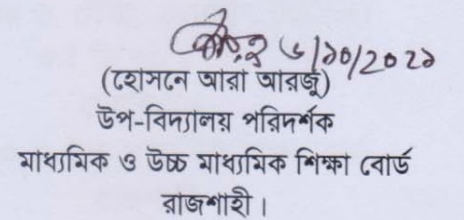 ৬/১০/2০২১
(হোসনে আরা আরজু)
উপ-বিদ্যালয় পরিদর্শক
মাধ্যমিক ও উচ্চ মাধ্যমিক শিক্ষা বোর্ড
রাজশাহী।